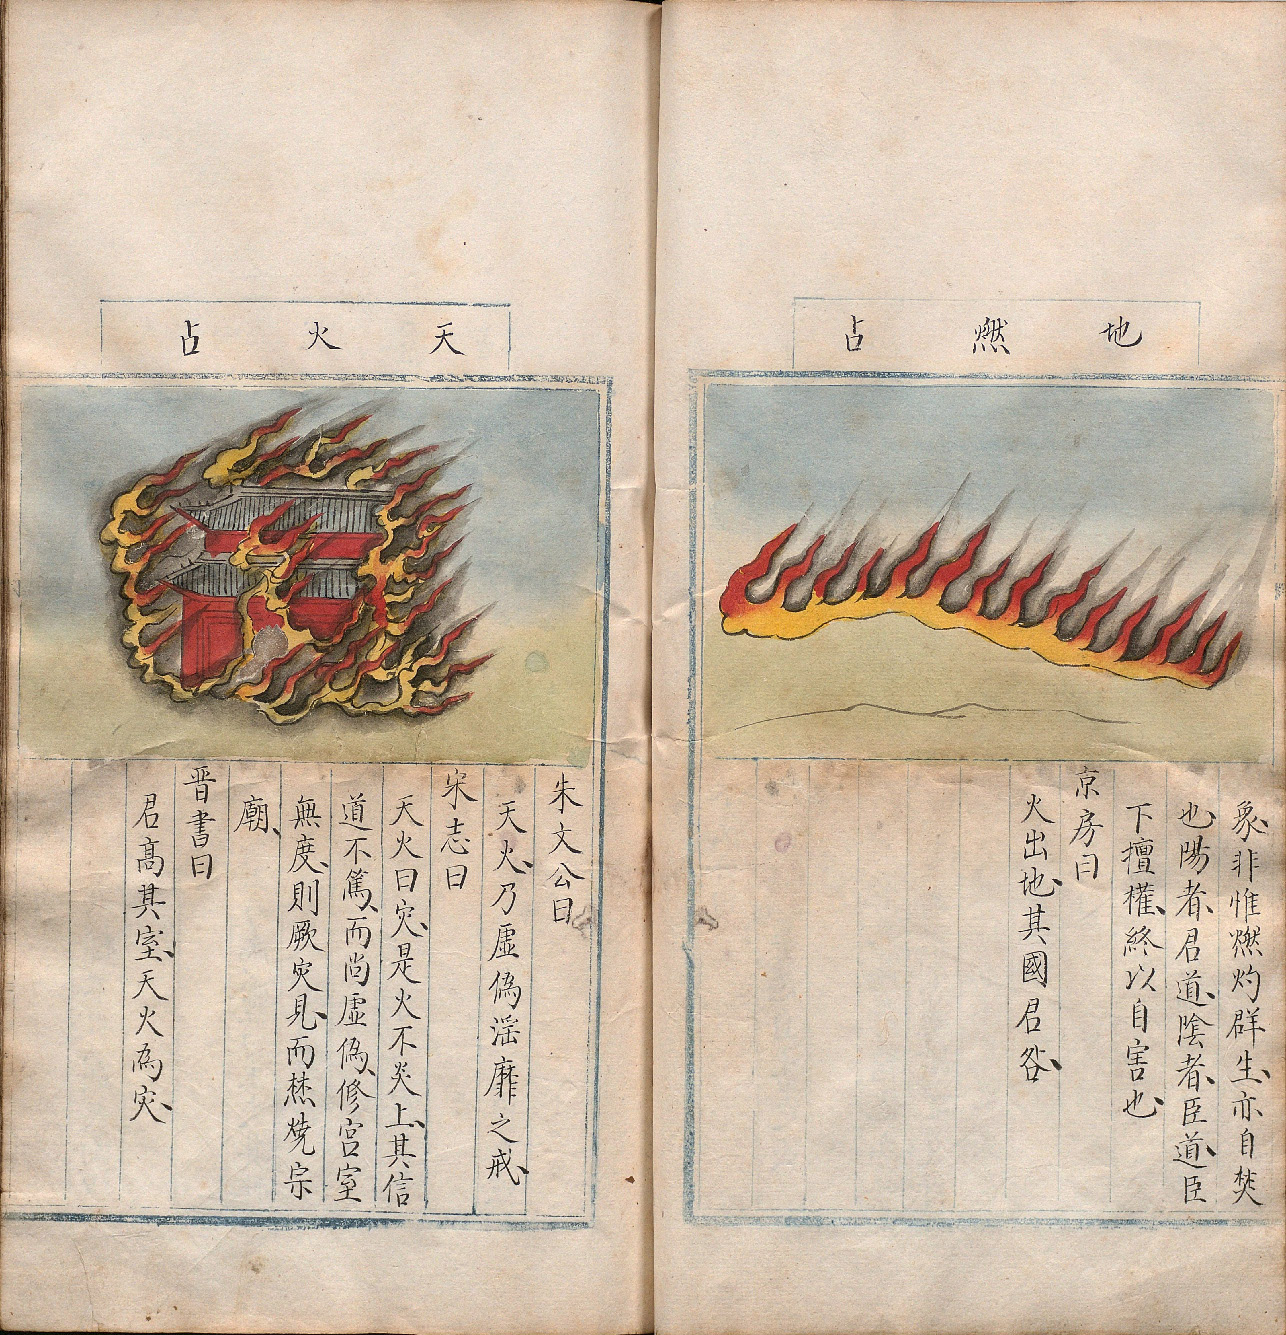 地燃占
象、非惟燃灼群生、亦自焚
也、陽者、君道、陰者、臣道、臣
下擅權、終以自害也、
京房曰
火出地、其國君咎、
天火占
朱文公曰
天火、乃虛偽淫靡之戒、
宋志曰
天火曰灾、是火不炎上、其信
道不篤、而尚虛偽、修宮室
無度、則厥灾見、而焚燒宗
廟、
晋書曰
君高其室、天火為灾、